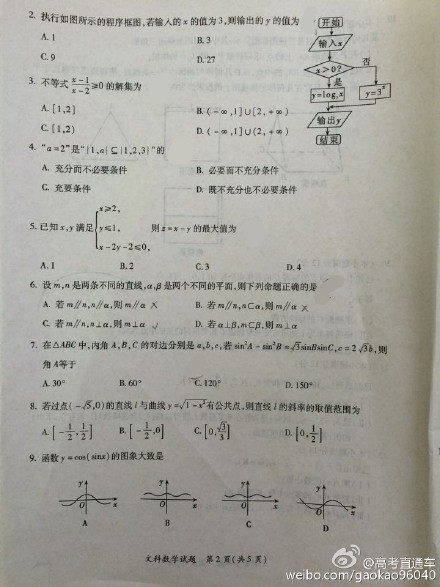 2. 执行如图所示的程序框图,若输入的 x 的值为 3,则输出的 y 的值为
A. 1
B. 3
C. 9
D. 27
开始
输入x
x>0?
否
是
y=3^x
输出y
结束
3. 不等式 (x-1)/(x-2) ≥0 的解集为
A. [1,2]
B. (-∞,1]∪[2,+∞)
C. [1,2)
D. (-∞,1]∪(2,+∞)
4. “a=2”是“{1,a}⊆{1,2,3}”的
A. 充分而不必要条件
B. 必要而不充分条件
C. 充要条件
D. 既不充分也不必要条件
x≥2,
5. 已知 x,y 满足 y≤1, 则 z=x-y 的最大值为
x-2y-2≤0,
A. 1
B. 2
C. 3
D. 4
6. 设 m,n 是两条不同的直线,α,β 是两个不同的平面,则下列命题正确的是
A. 若 m∥n,n∥α,则 m∥α ×
B. 若 m∥n,n⊂α,则 m∥α ×
C. 若 m∥n,n⊥α,则 m⊥α ✓
D. 若 α⊥β,m⊂β,则 m⊥α
7. 在△ABC 中,内角 A,B,C 的对边分别是 a,b,c,若 sin²A-sin²B=√3sinBsinC,c=2√3b,则
角 A等于
A. 30°
B. 60°
C. 120°
D. 150°
8. 若过点(-√5,0)的直线 l 与曲线 y=√(1-x²)有公共点,则直线 l 的斜率的取值范围为
A. [-1/2,1/2]
B. [-1/2,0]
C. [0,√3/3]
D. [0,1/2]
9. 函数 y=cos(sinx)的图象大致是
O x
O x
O x
O x
A
B
C
D
文科数学试题 第 2 页(共 5 页)
@高考直通车
weibo.com/gaokao96040